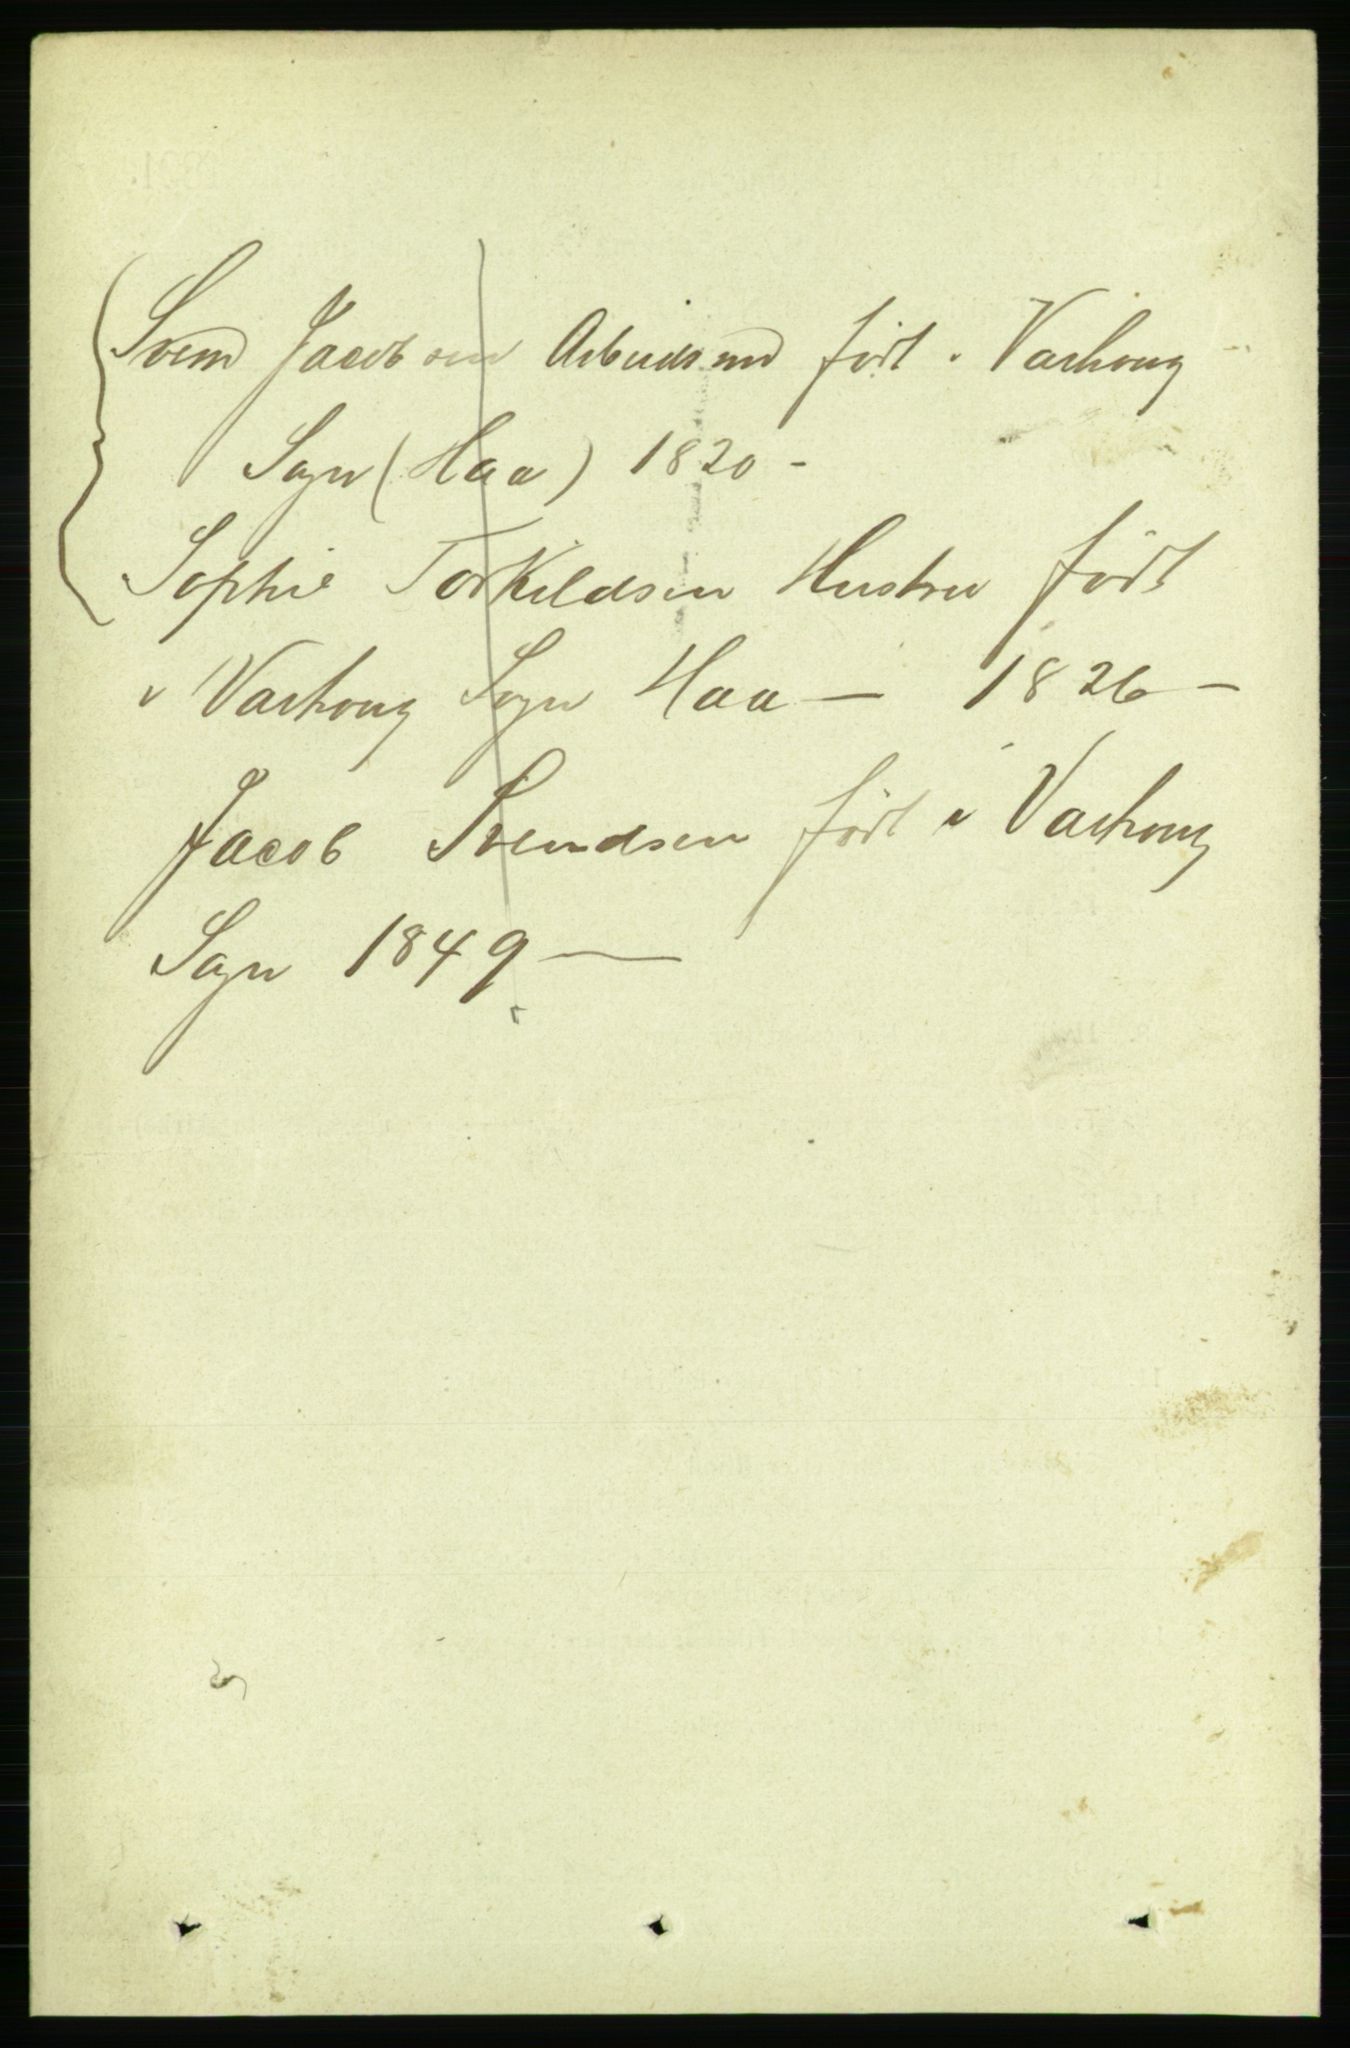 Svend Jacobsen Arbeidsmd født i Varhoug
Sogn (Haa) 1820 -
Sophie Torkildsen Hustru født
i Varhoug Sogn Haa — 1826 —
Jacob Svendsen født i Varhoug
Sogn 1849 —